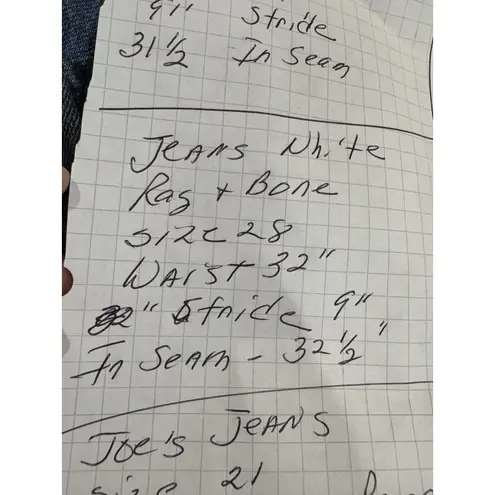 9" Stride
31 1/2 In Seam
JEANS White
Rag + Bone
size 28
WAIST 32"
" Stride 9"
In Seam - 32 1/2"
Joe's JEANS
size 21